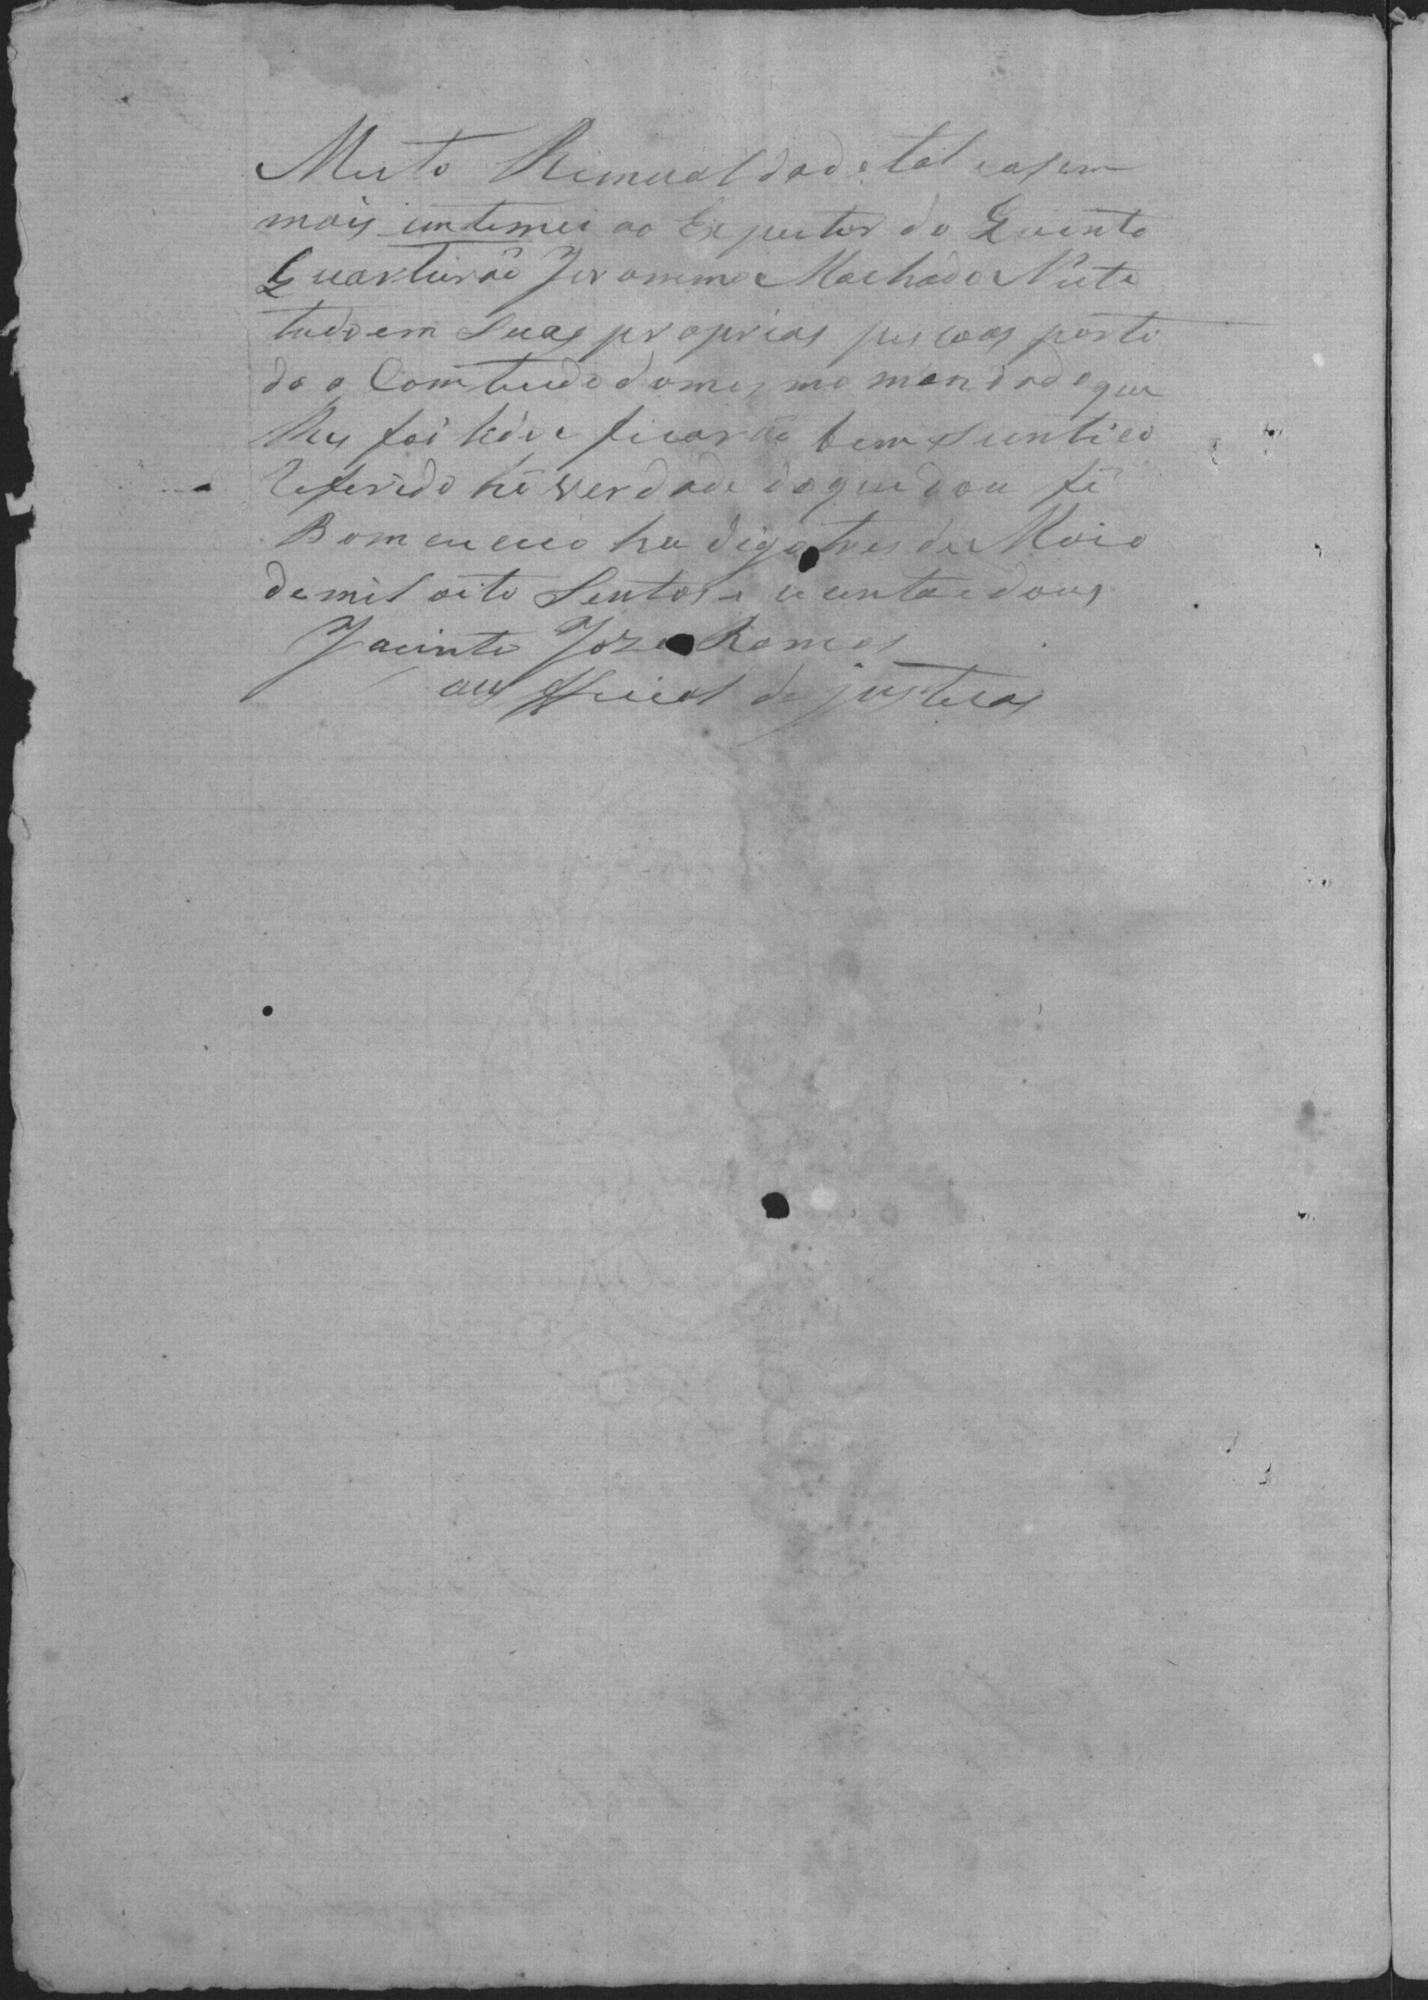 Muto Rimualdo de tal e asim
mais intimei ao Expector do Quinto
Quarteirão Jeronimo Machado Nuto
tudo em Suas proprias pescoas por to
do o Comteudo do mesmo mandado que
lhes foi lido e ficarão bem Sienti eo
Referido hé verdade do que dou fé
Bom sucio ha digo tres de Maio
de mil oito Sentos e oitenta e dous
Jacinto Joze Ramos
Official de justicas